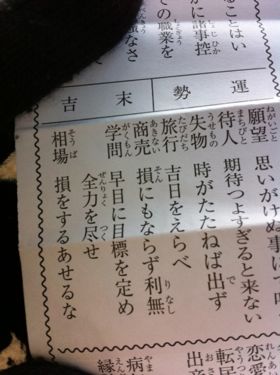 ることはい
に諸事控
ての職業を
運勢
末吉
願望 思いがけぬ事に
待人 期待つよすぎると来ない
失物 時がたたねば出ず
旅行 吉日をえらべ
商売 損にもならず利無
学問 早目に目標を定め
全力を尽せ
相場 損をするあせるな
恋愛
転居
病
縁